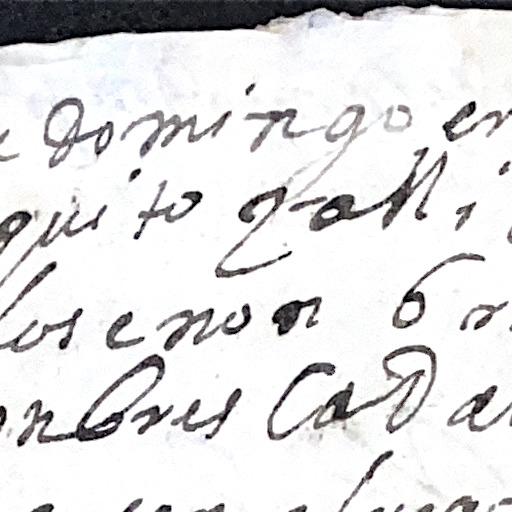 domingo en
quito y alli
los enon br
onbres Cada